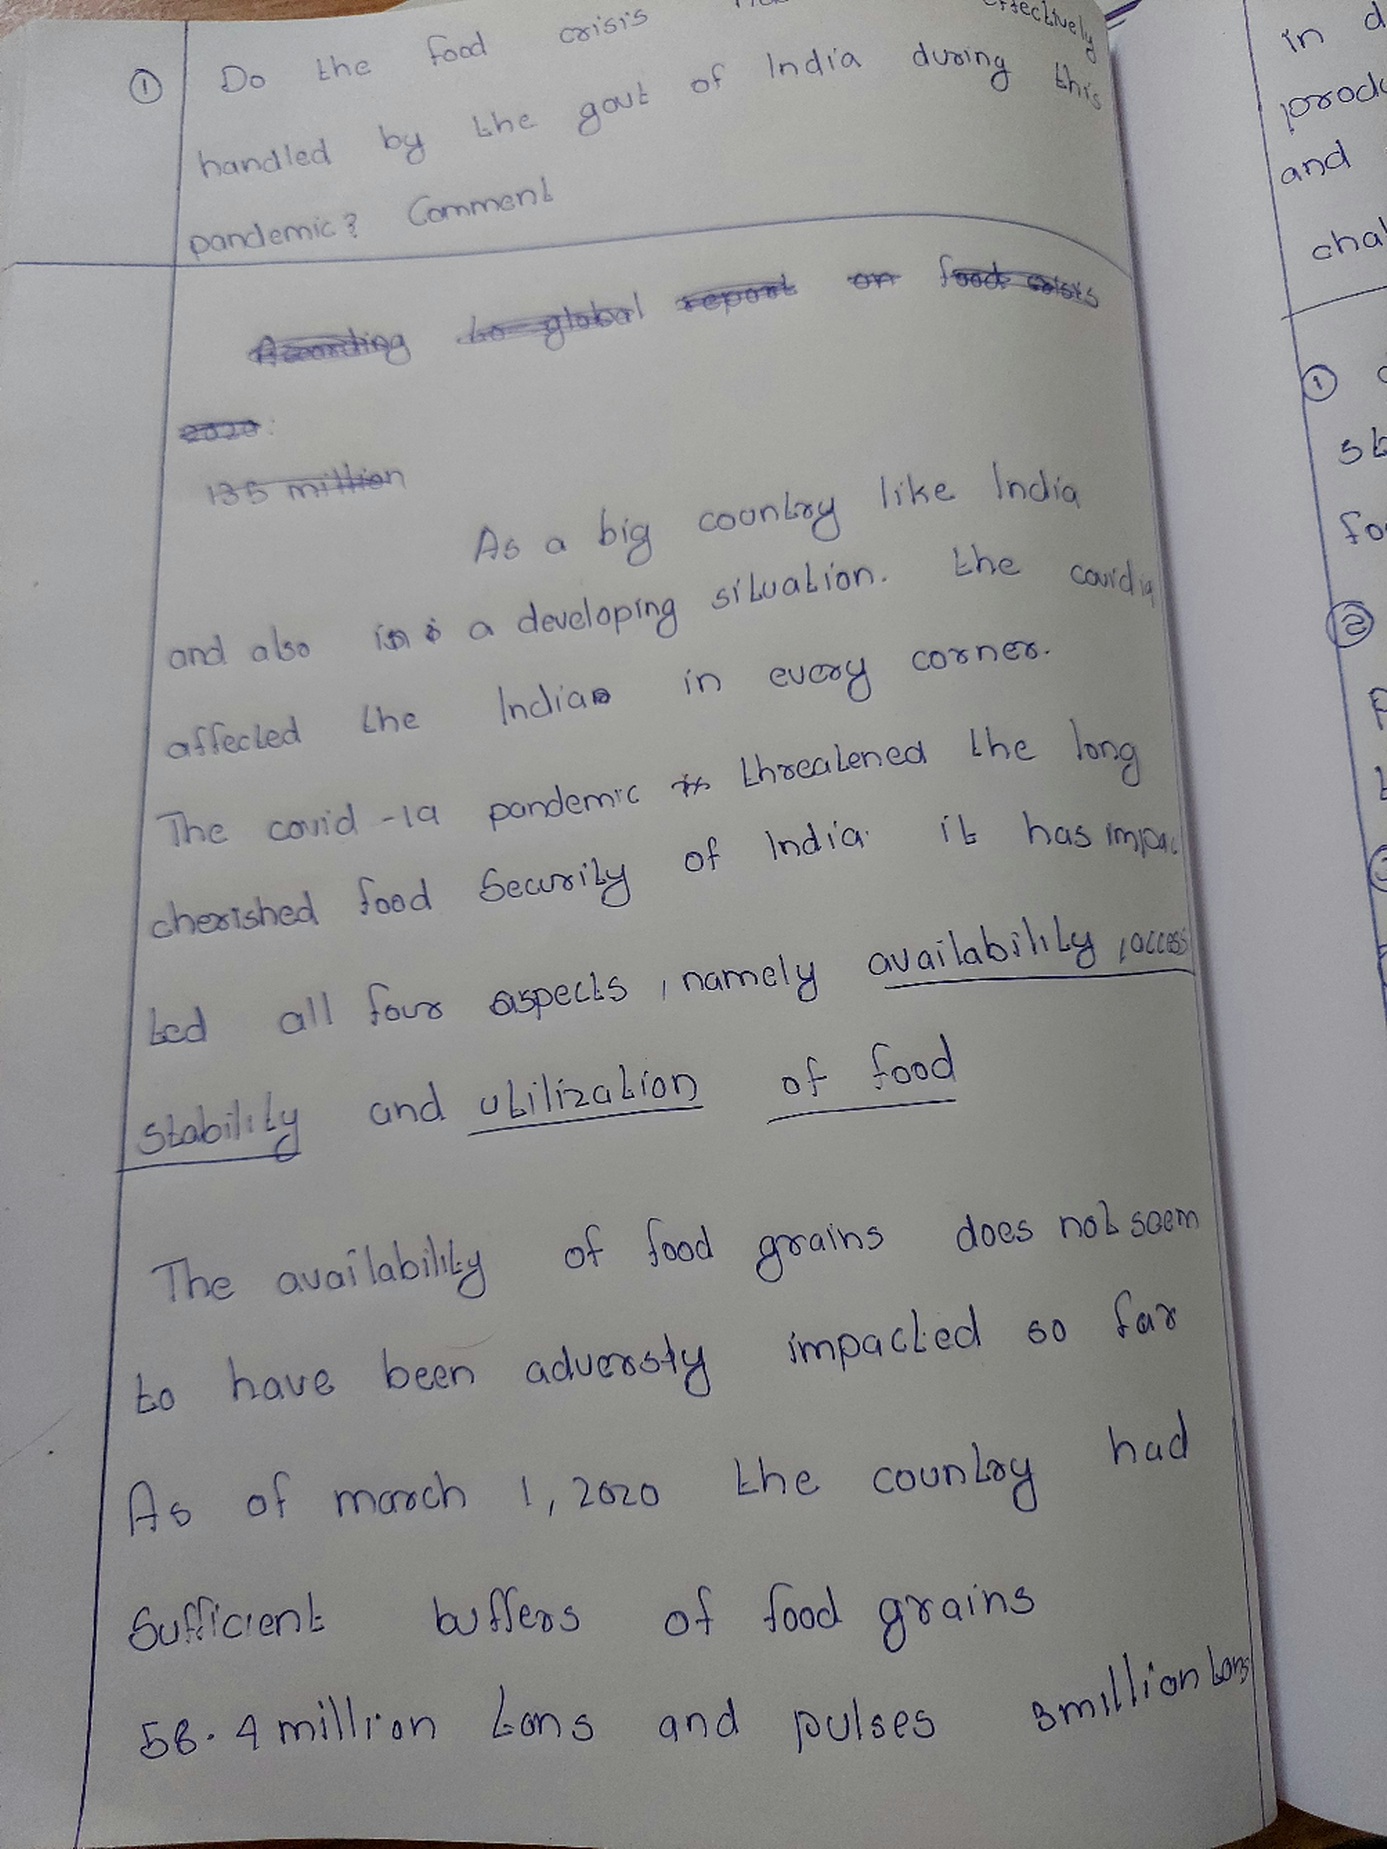 ① Do the food crisis effectively
handled by the govt of India during this
pandemic? Comment
According to global report on food crisis
2020:
135 million
As a big country like India
and also is a developing situation. the covid 19
affected the India in every corner.
The covid -19 pandemic threatened the long
cherished food Security of India. it has impac
ted all four aspects, namely availability, access
stability and utilization of food
The availability of food grains does not seem
to have been adversty impacted so far
As of march 1, 2020 the country had
Sufficient buffers of food grains
58.4 million tons and pulses 3million tons
in d
prod
and
chal
①
st
fo
②